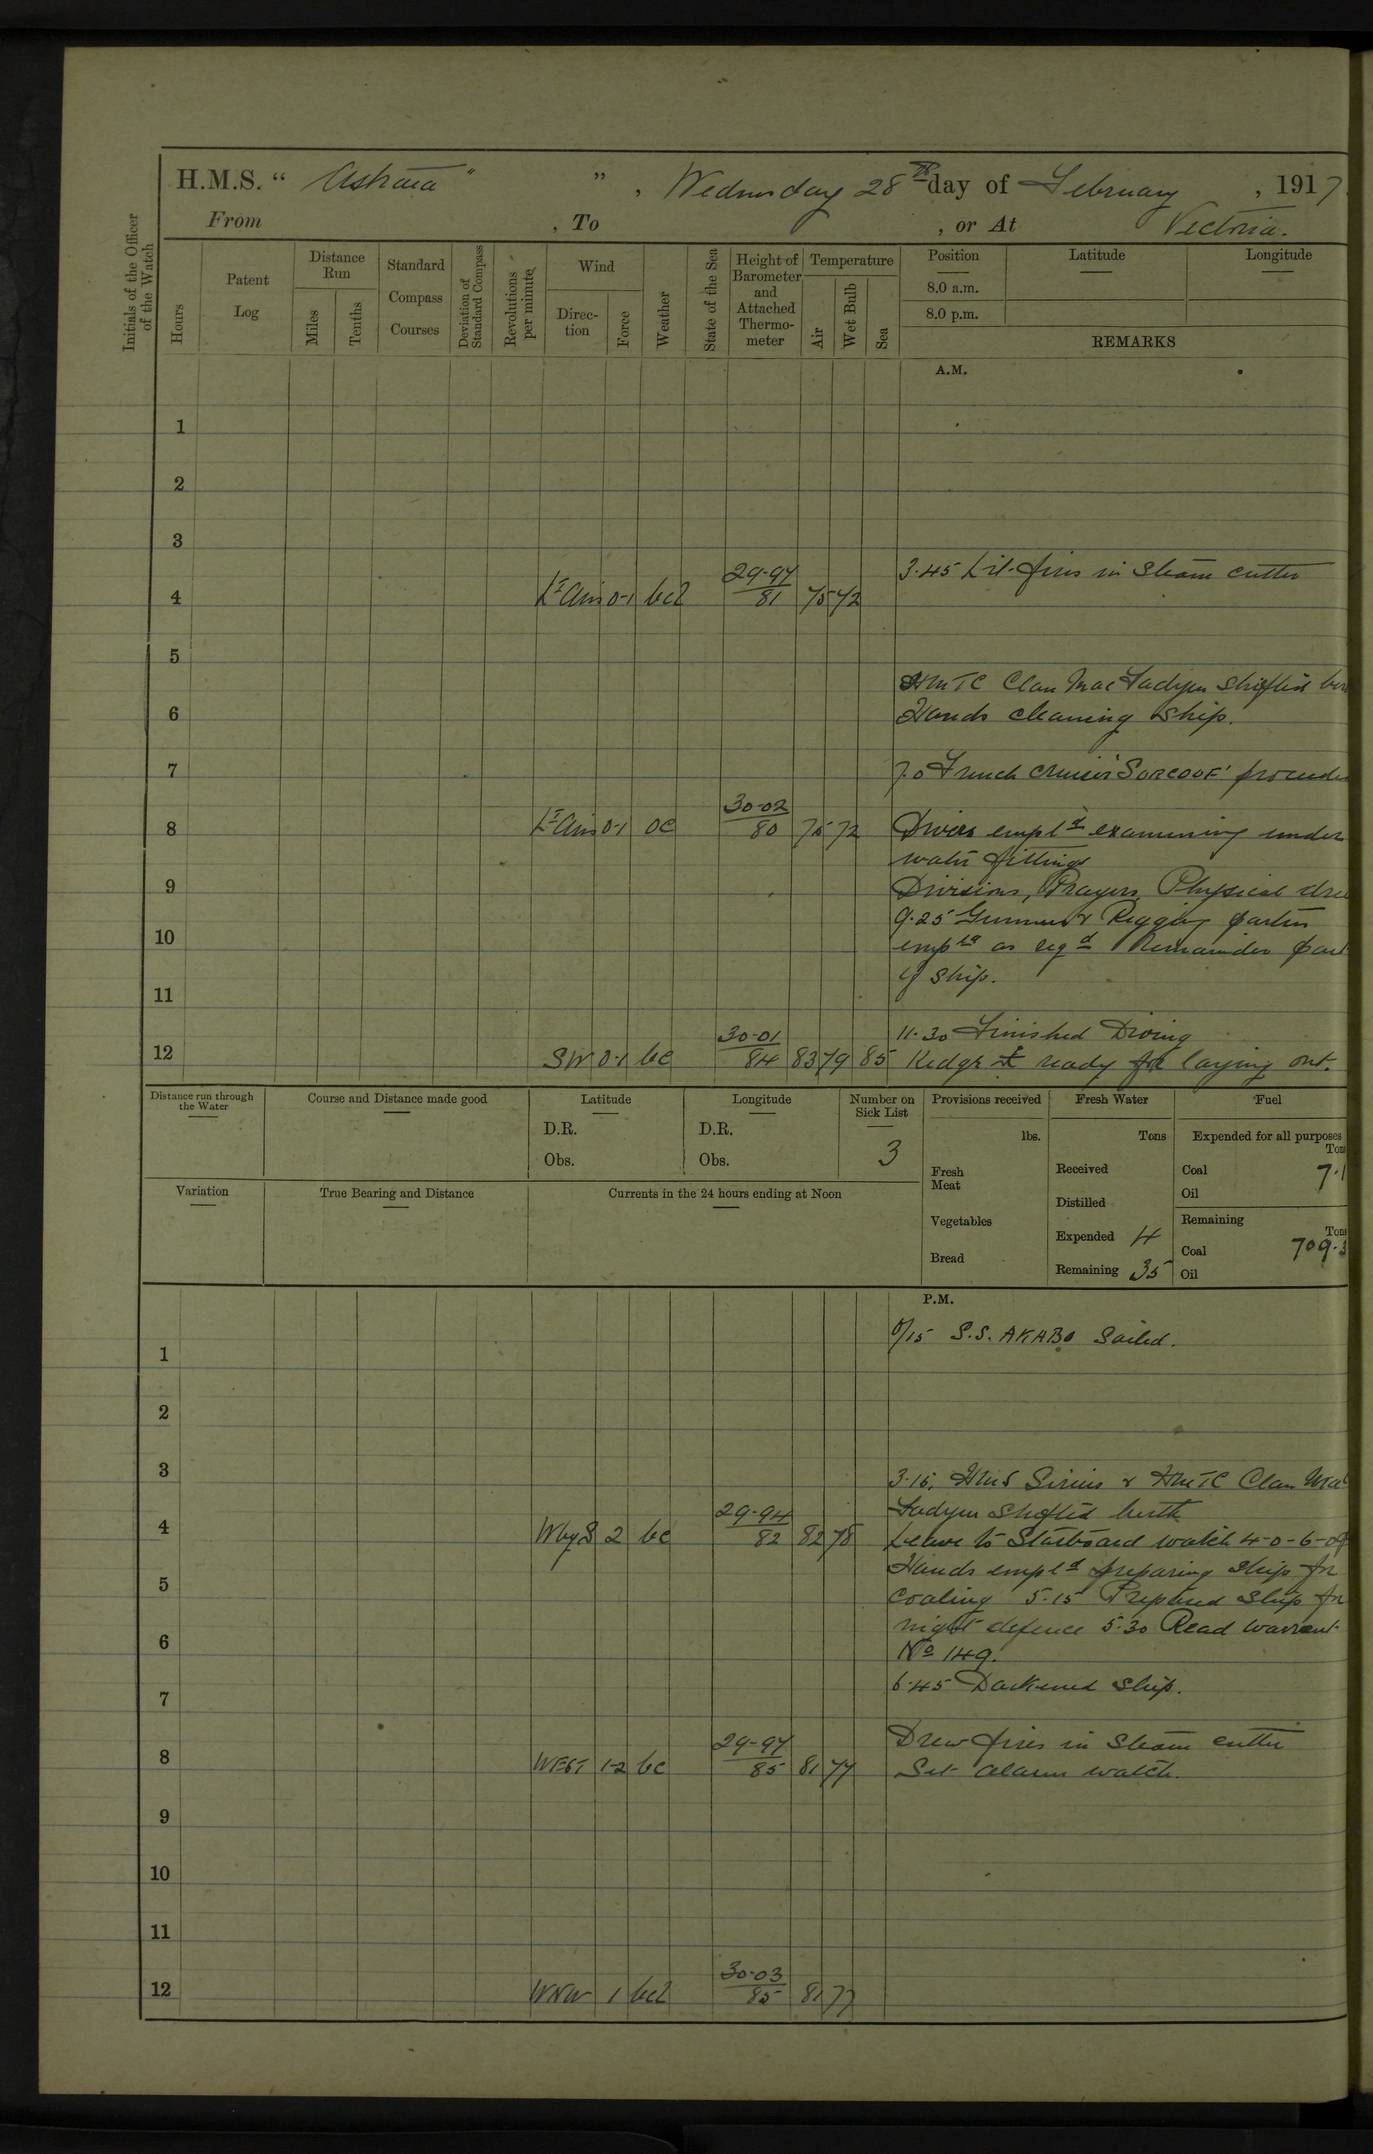 H.M.S. " Astraea " " , Wednesday 28th day of February , 1917.
From , To , or At Victoria.
Initials of the Officer of the Watch
Hours
Patent Log
Distance Run
Miles
Tenths
Standard Compass Courses
Deviation of Standard Compass
Revolutions per minute
Wind
Direction
Force
Weather
State of the Sea
Height of Barometer and Attached Thermometer
Temperature
Air
Wet Bulb
Sea
Position
8.0 a.m.
8.0 p.m.
Latitude
Longitude
REMARKS
A.M.
1
2
3
3.45 Lit fires in Steam cutter
4 Lt Airs 0-1 bcl 29.97/81 75 72
5
HMTC Clan MacFadyen shifted
6 Hands cleaning ship.
7 7.0 French cruiser 'SURCOUF'
8 Lt Airs 0-1 oc 30.02/80 75 72 Divers empld examining under
water fittings
9 Divisions, Prayers, Physical
9.25 Gunners & Rigging parties
10 empld as reqd Remainder
of Ship.
11
11.30 Finished Diving
12 SW 0-1 bc 30.01/84 83 79 85 Kedge ⚓ ready for laying out.
Distance run through the Water
Course and Distance made good
Latitude
D.R.
Obs.
Longitude
D.R.
Obs.
Number on Sick List
3
Provisions received
lbs.
Fresh Meat
Vegetables
Bread
Fresh Water
Tons
Received
Distilled
Expended 4
Remaining 35
Fuel
Expended for all purposes
Tons
Coal 7.1
Oil
Remaining
Tons
Coal 709.3
Oil
Variation
True Bearing and Distance
Currents in the 24 hours ending at Noon
P.M.
0/15 S.S. AKABO Sailed.
1
2
3
3.15. HMS Sirius & HMTC Clan Mac
Fadyen shifted berth
4 WbyS 2 bc 29.94/82 82 78 Leave to Starboard watch 4-0-6-0
Hands empld preparing ship for
5 coaling 5.15 Prepared Ship for
night defence 5.30 Read warrant
6 No 149.
6.45 Darkened Ship.
7
Drew fires in Steam cutter
8 WEST 1-2 bc 29.97/85 81 77 Set alarm watch.
9
10
11
12 WNW 1 bcl 30.03/85 81 77